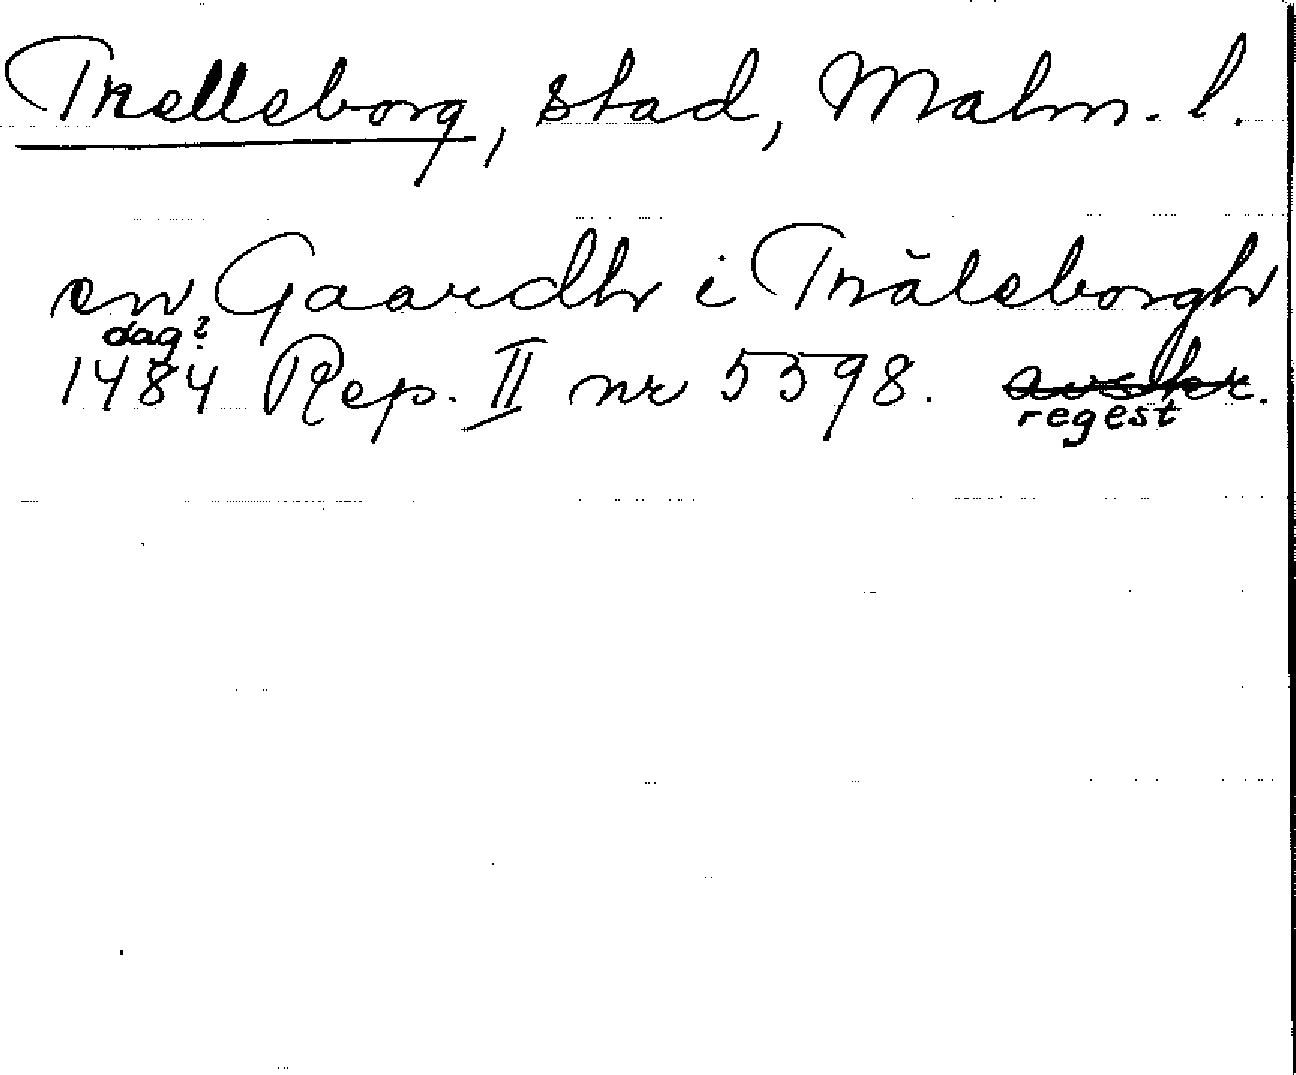 Trelleborg, stad, Malm. l.
en Gaardh i Träleborgh
dag?
1484 Rep. II nr 5598. avskr.
regest